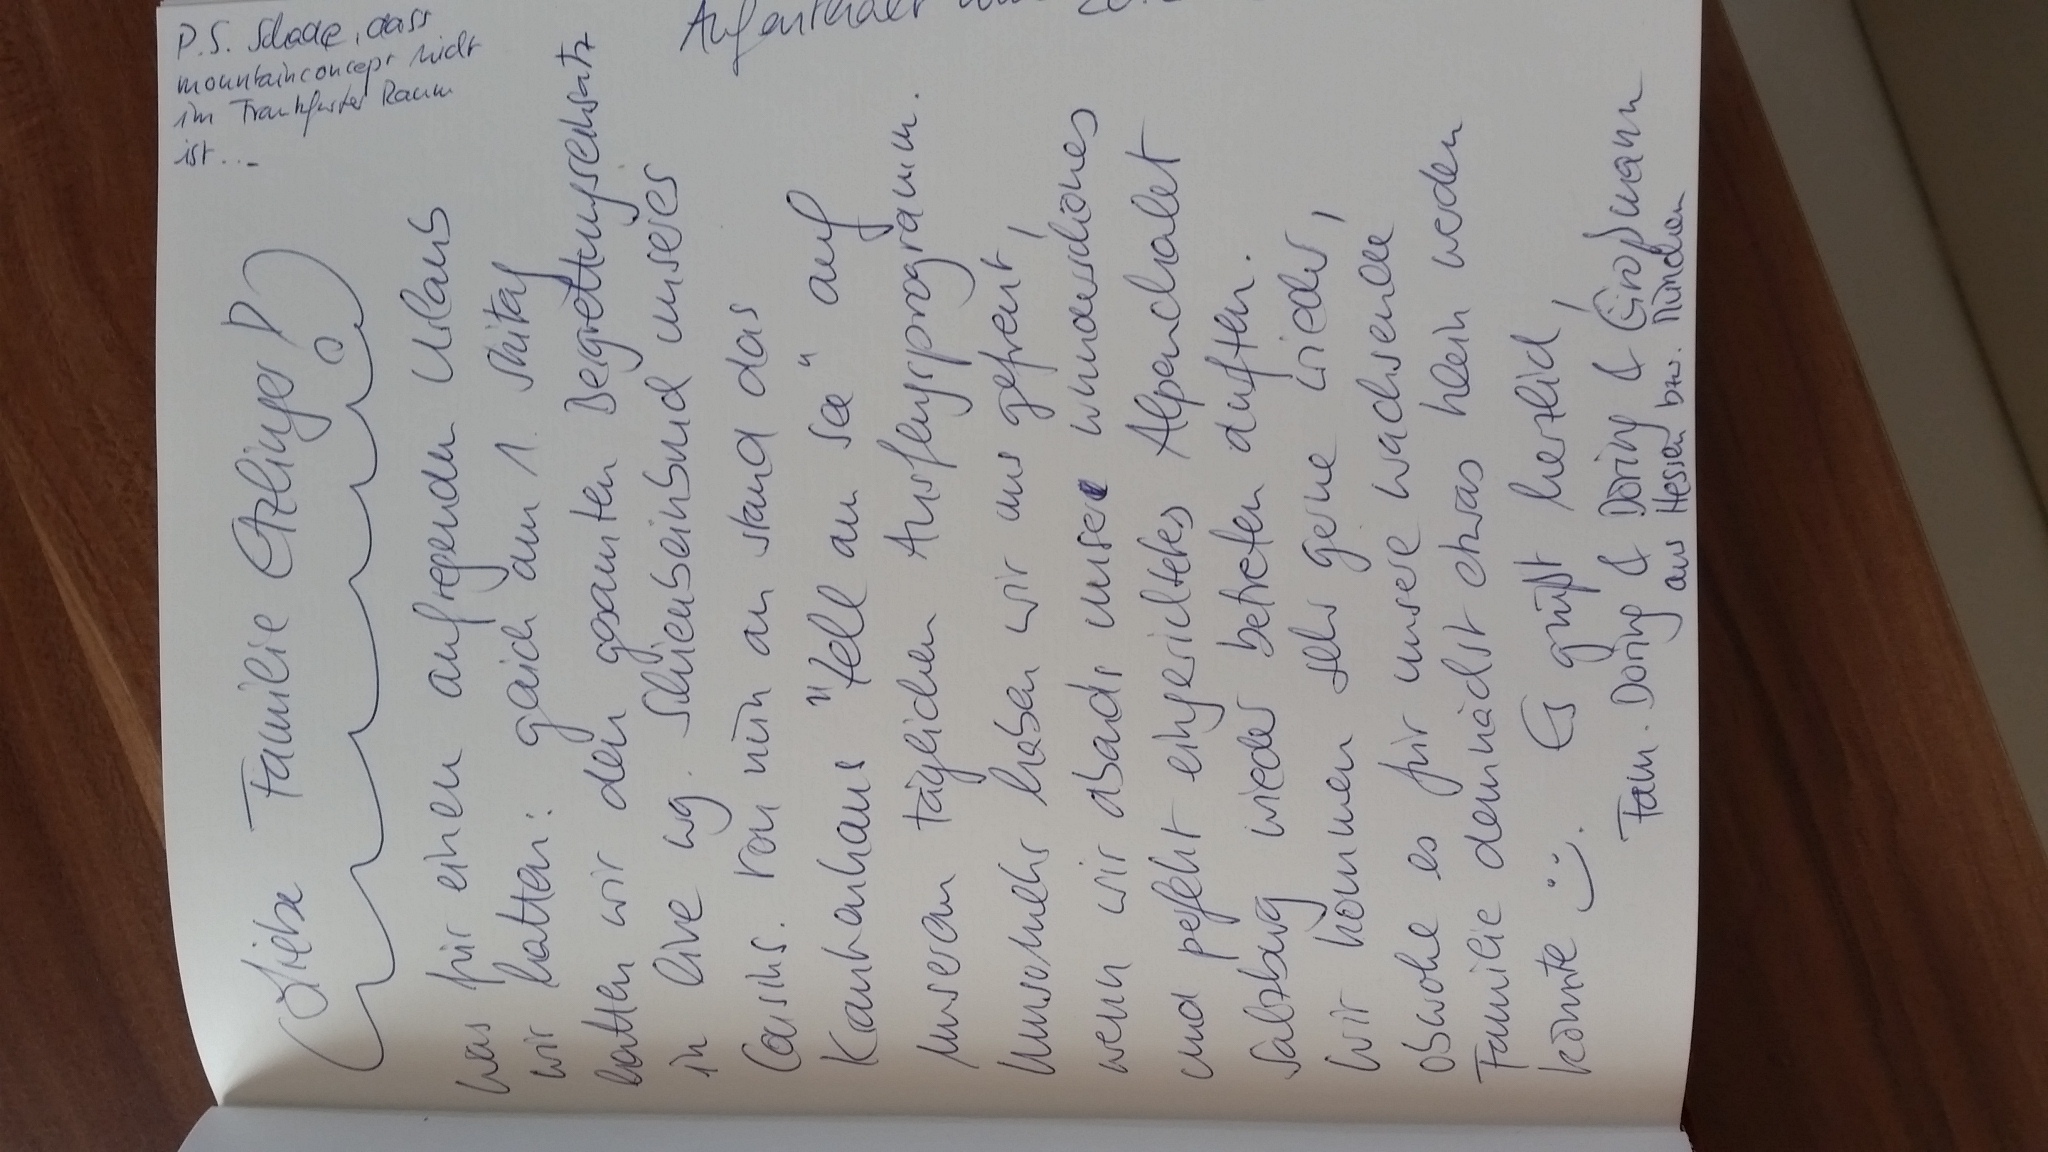 Liebe Familie Etzlinger!
was für einen aufregenden Urlaub
wir hatten: gleich am 1. Skitag
hatten wir den gesamten Bergrettungseinsatz
in live wg. Schienbeinbruch unseres
Cousins. Von nun an stand das
Krankenhaus "Zell am See" auf
unserem täglichen Ausflugsprogramm.
Umsomehr haben wir uns gefreut,
wenn wir abends unser wunderschönes
und perfekt eingerichtetes Alpenchalet
Salzburg wieder betreten durften.
Wir kommen sehr gerne wieder,
obwohl es für unsere wachsende
Familie demnächst etwas klein werden
könnte :-). Es grüßt herzlich,
Fam. Döring & Döring & Großmann
aus Hessen bzw. München
P.S. Schade, dass
mountainconcept nicht
im Frankfurter Raum
ist...
Aufenthalt vom